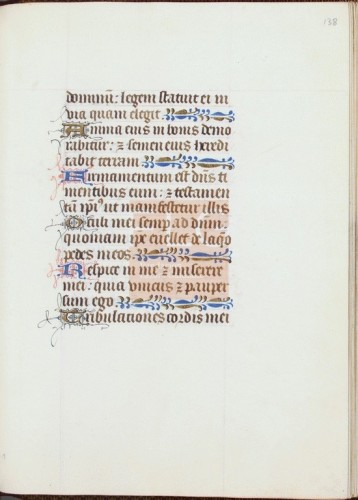 138
dominū: legem statuit ei in
via quam elegit
Anima eius in bonis demo
rabitur: ⁊ semen eius heredi
tabit terram
Firmamentum est dn̄s ti
mentibus eum: ⁊ testamen
tū ip̄i⁹ ut manifestetur illis
Oculi mei semp ad dn̄m:
quoniam ip̄e euellet de laq̄o
pedes meos
Respice in me ⁊ miserere
mei: quia vnicus ⁊ pauper
sum ego
Tribulationes cordis mei